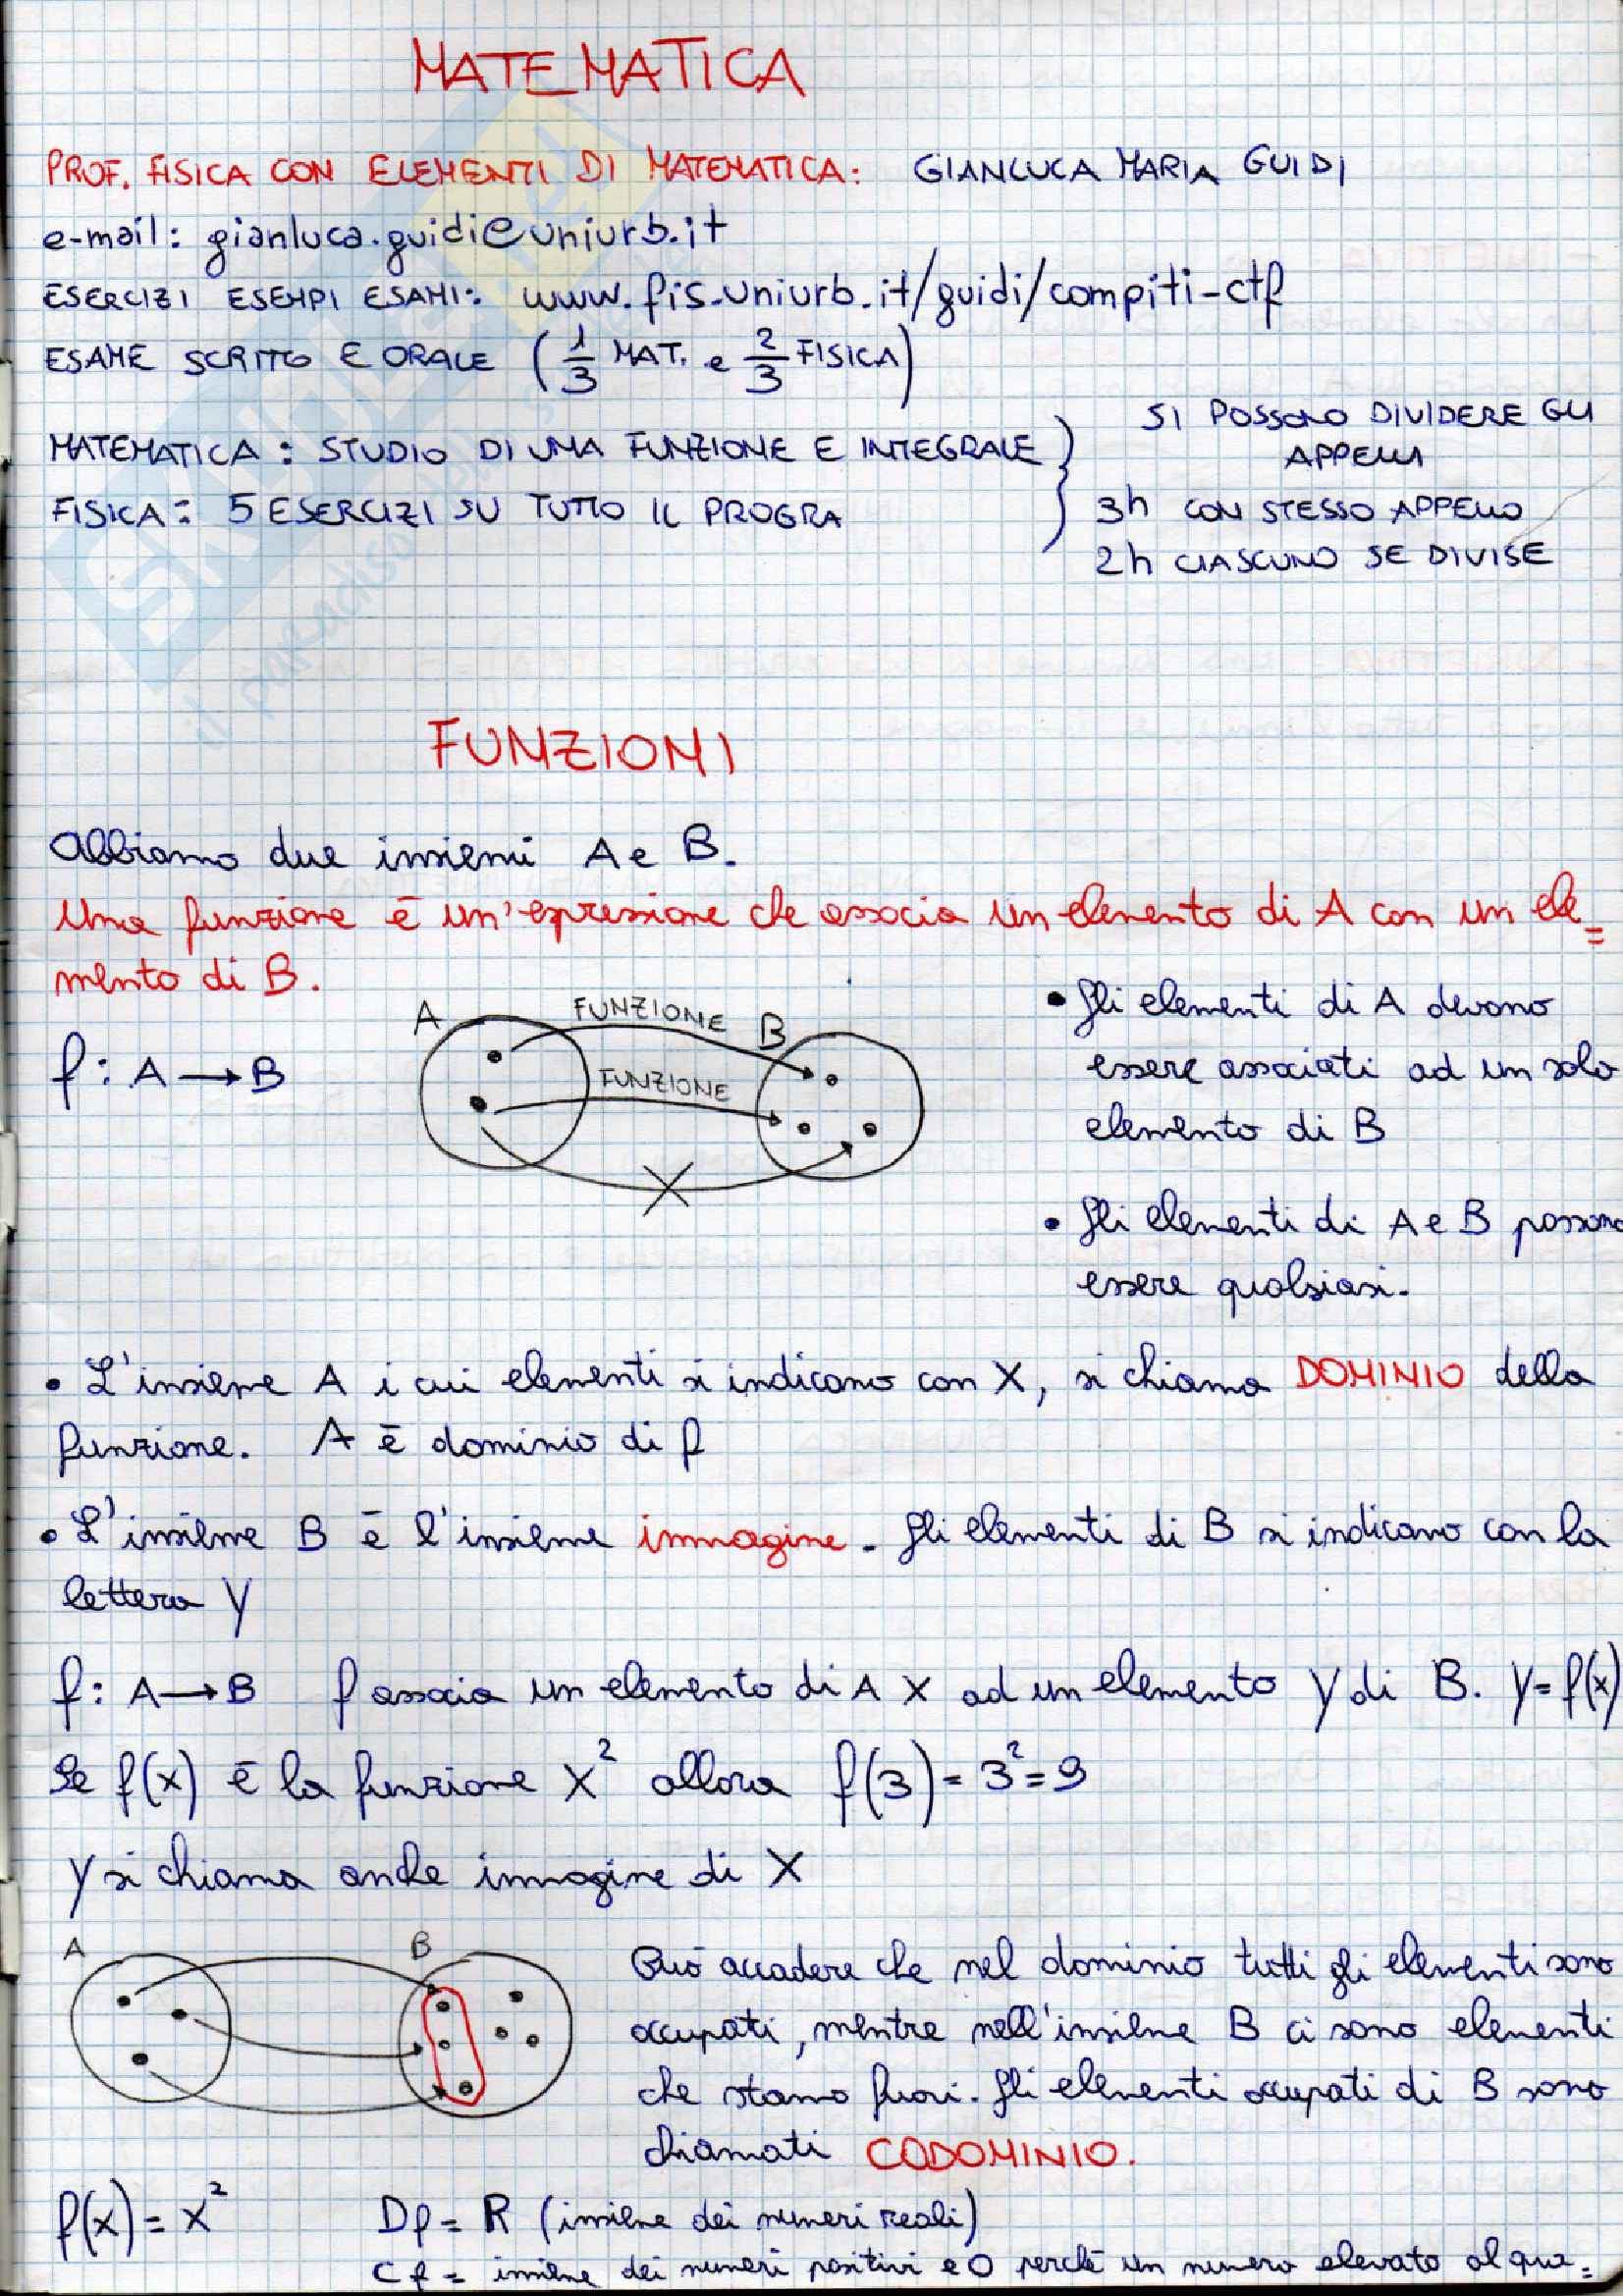 MATEMATICA
PROF. FISICA CON ELEMENTI DI MATEMATICA: GIANLUCA MARIA GUIDI
e-mail: gianluca.guidi@uniurb.it
ESERCIZI ESEMPI ESAMI: www.fis.uniurb.it/guidi/compiti-ctf
ESAME SCRITTO E ORALE (1/3 MAT. e 2/3 FISICA)
MATEMATICA: STUDIO DI UNA FUNZIONE E INTEGRALE
FISICA: 5 ESERCIZI SU TUTTO IL PROGRA
SI POSSONO DIVIDERE GLI
APPELLI
3h CON STESSO APPELLO
2h CIASCUNO SE DIVISE
FUNZIONI
Abbiamo due insiemi A e B.
Una funzione è un'espressione che associa un elemento di A con un ele=
mento di B.
f: A → B
A FUNZIONE B
FUNZIONE
• Gli elementi di A devono
essere associati ad un solo
elemento di B
• Gli elementi di A e B possono
essere qualsiasi.
• L'insieme A i cui elementi si indicano con X, si chiama DOMINIO della
funzione. A è dominio di f
• L'insieme B è l'insieme immagine. Gli elementi di B si indicano con la
lettera y
f: A → B f associa un elemento di A X ad un elemento y di B. y = f(x)
Se f(x) è la funzione x² allora f(3) = 3² = 9
y si chiama anche immagine di X
A B
Può accadere che nel dominio tutti gli elementi sono
occupati, mentre nell'insieme B ci sono elementi
che stanno fuori. Gli elementi occupati di B sono
chiamati CODOMINIO.
f(x) = x² Df = R (insieme dei numeri reali)
Cf = insieme dei numeri positivi e 0 perchè un numero elevato al qua=